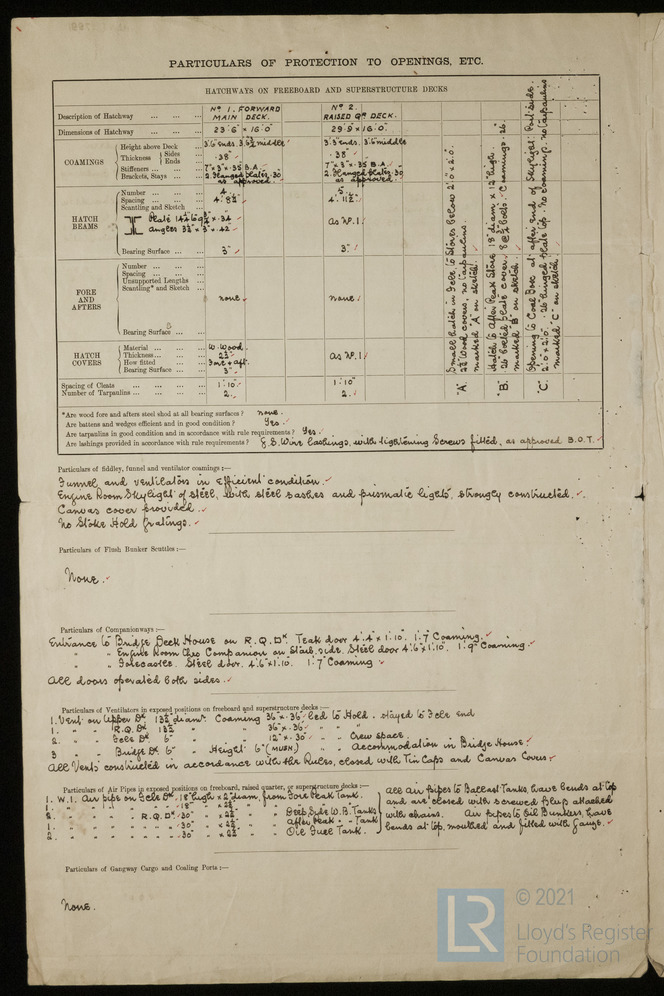 PARTICULARS OF PROTECTION TO OPENINGS, ETC.
HATCHWAYS ON FREEBOARD AND SUPERSTRUCTURE DECKS
Description of Hatchway ... ... ... No 1. FORWARD MAIN DECK. No 2. RAISED Qr DECK.
Dimensions of Hatchway ... ... ... 23'6" × 16'0" 29'9" × 16'0"
COAMINGS
Height above Deck ... 3'6" ends. 3'6½" middle 3'3" ends. 3'6" middle
Thickness { Sides ... Ends ... .38" .38"
Stiffeners ... ... 7" × 3" × .35 B.A. 7" × 3" × .35 B.A.
Brackets, Stays ... ... 2. Flanged plates .30 as approved. 2. Flanged plates .30 as approved.
HATCH BEAMS
Number ... ... ... 4. 5.
Spacing ... ... ... 4'.8½" 4'.11½"
Scantling and Sketch ...
Plate .34
angles 3½" × 3" × .42
As No.1.
Bearing Surface ... ... 3" 3"
FORE AND AFTERS
Number ... ... ...
Spacing ... ... ...
Unsupported Lengths
Scantling* and Sketch ... none none
Bearing Surface ...
HATCH COVERS
Material ... ... ... W. Wood.
Thickness... ... ... 2½"
How fitted ... ... Fore & aft. As No.1.
Bearing Surface ... 3"
Spacing of Cleats ... ... ... 1'.10" 1'.10"
Number of Tarpaulins... ... ... 2. 2.
"A". Small hatch in Fcle to Stores below 2'.0" × 2'.0".
2½" Wood covers, no tarpaulins.
marked "A" on sketch.
"B". Hatch to After Peak Store 18" diam × 12" high.
.26" bolted plate cover. bolts. Coamings .26.
marked "B" on sketch.
"C". Opening to Coal Box at after end of Skylight. Port side.
2'.0" × 2'.0". .26 hinged plate top. no Coaming. no tarpaulins
marked "C" on sketch.
*Are wood fore and afters steel shod at all bearing surfaces? none.
Are battens and wedges efficient and in good condition? Yes.
Are tarpaulins in good condition and in accordance with rule requirements? Yes.
Are lashings provided in accordance with rule requirements? G.S. Wire lashings, with tightening screws fitted, as approved B.O.T.
Particulars of fiddley, funnel and ventilator coamings:—
Funnel, and ventilators in efficient condition.
Engine Room Skylight of steel, with steel sashes and prismatic lights, strongly constructed.
Canvas cover provided.
No Stoke Hold gratings.
Particulars of Flush Bunker Scuttles:—
None.
Particulars of Companionways:—
Entrance to Bridge Deck House on R.Q.Dk. Teak door 4'.4" × 1'.10". 1'.7" Coaming.
" " Engine Room thro Companion on Starb. side. Steel door 4'.6" × 1'.10". 1'.9" Coaming.
" " Forecastle. Steel door. 4'.6" × 1'.10". 1'.7" Coaming
All doors operated both sides.
Particulars of Ventilators in exposed positions on freeboard and superstructure decks:—
1. Vent on Upper Dk 13½" diamr. Coaming 36" × .36" led to Hold. stayed to Fcle end
1. " " R.Q.Dk 13½ " " 36" × .36" " "
2. " " Fcle Dk 6" " " 12" × .30" " " Crew space.
3 " " Bridge Dk 6" " Height 6" (MUSH.) " " Accommodation in Bridge House.
All Vents constructed in accordance with the Rules, closed with Tin Caps and Canvas Covers.
Particulars of Air Pipes in exposed positions on freeboard, raised quarter, or superstructure decks:—
1. W.I. Air pipe on Fcle Dk. 18" high × 2" diam. from Fore Peak Tank.
1. " " " " " " 18" " × 2½" " "
2. " " " " R.Q.Dk. 30" " × 2½" " " Deep Side W.B. Tanks
1. " " " " " 30" " × 2½" " " After Peak " Tank
2. " " " " " 30" " × 2½" " " Oil Fuel Tank.
All air pipes to Ballast Tanks, have bends at top
and are closed with screwed plug attached
with chains. Air pipes to Oil Bunkers, have
bends at top, mouthed and fitted with Gauze.
Particulars of Gangway Cargo and Coaling Ports:—
None.
LR © 2021
Lloyd's Register
Foundation